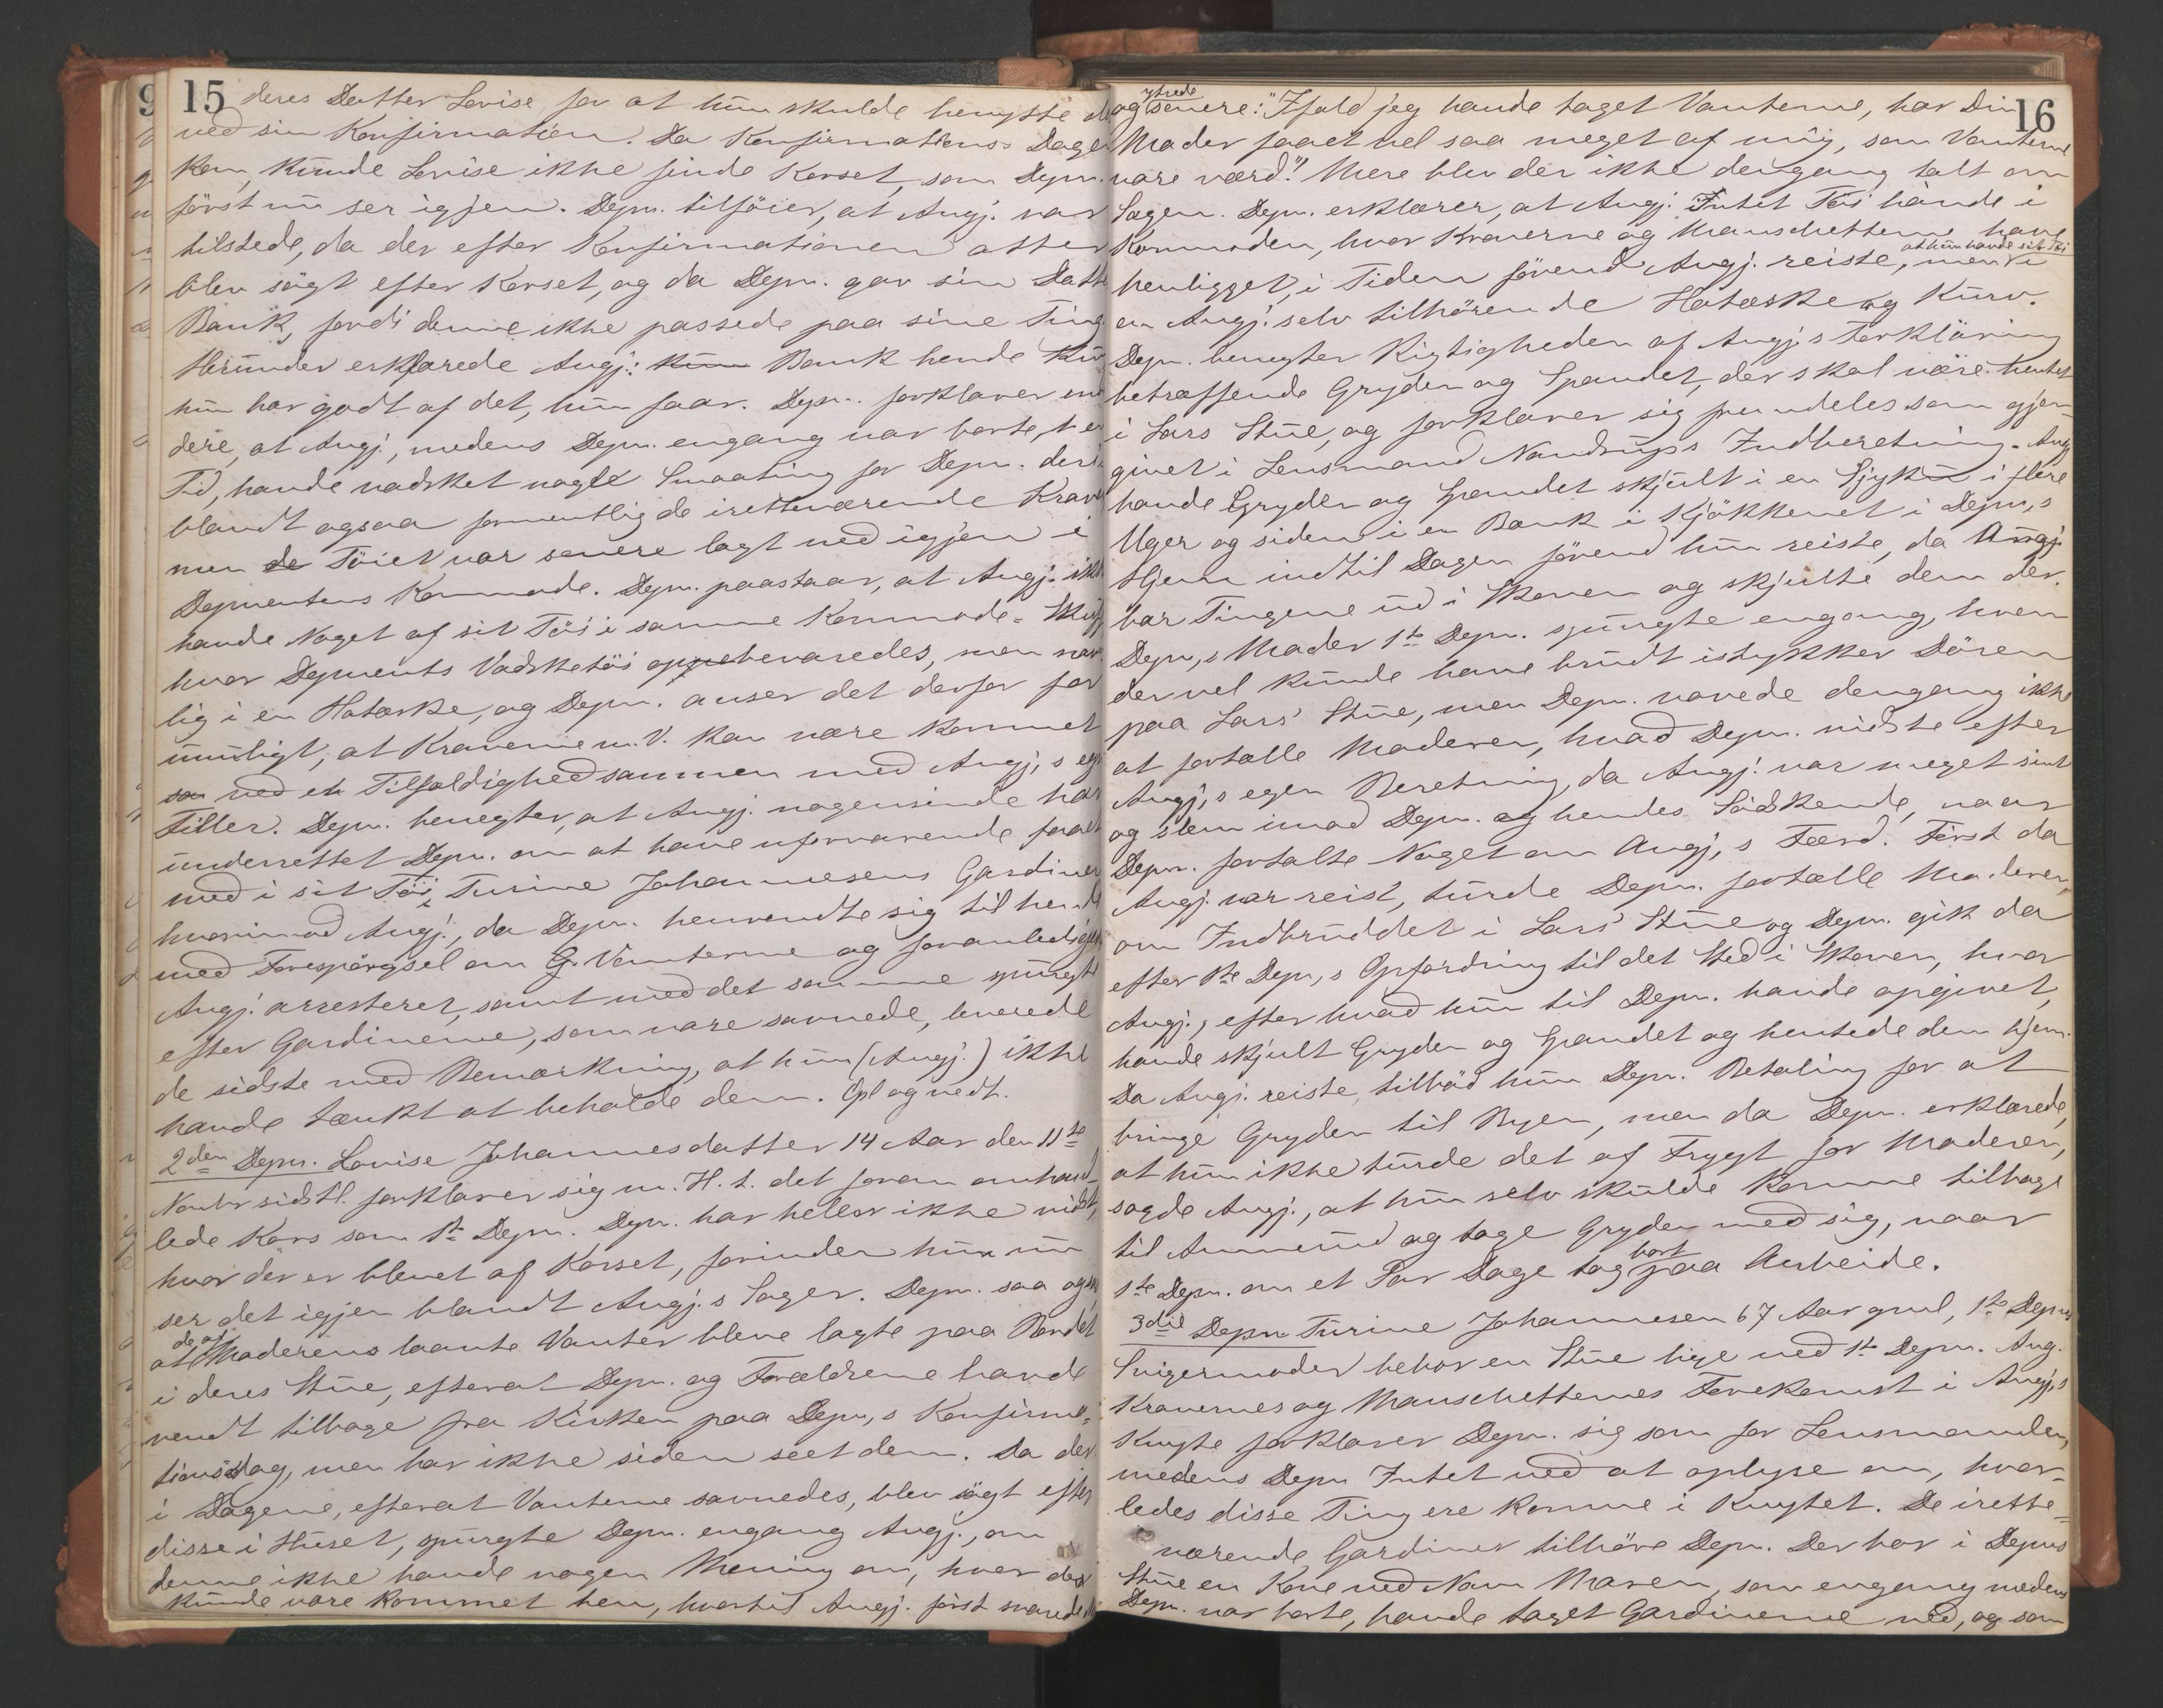 15
deres Datter Lovise for at hun skulde benytte de
ved sin Konfirmation. Da Konfirmations Dagen
kom, kunde Lovise ikke finde Korset, som Depn.
först nu ser igjen. Depn. tilföier, at Angj. var
tilstede, da der efter Konfirmationen atter
blev sögt efter Korset, og da Depn. gav sin Datter
Bank, fordi denne ikke passede paa sine Ting.
Herunder erklærede Angj.: Bank hende
hun har godt af det, hun faar. Depn. forklarer vi-
dere, at Angj., medens Depn. engang var borte,
Tid, havde vadsket nogle Smaating for Depn. deri-
blandt ogsaa formentlig de iretteværende Kraver
men de Töiet var senere lagt ned igjen i
Deponentens Kommode. Depn. paastaar, at Angj. ikke
havde Noget af sit Töi i samme Kommode-Skuffe
hvor Deponents Vadsketöi opbevaredes, men
lig i en Hatæske, og Depn. anser det derfor for
umuligt, at Kraverne m. V. kan være kommet
ved et Tilfældighed sammen med Angj,s egne
Filler. Depn. benegter, at Angj. nogensinde har
underrettet Depn. om at have uforvarende faaet
med i sit Töi, Turine Johannesens Gardiner
hvorimod Angj., da Depn. henvendte sig til hende
med Forespörgsel om Vanterne og foranledigede
Angj. arresteret, samt med det samme spurgte
efter Gardinerne, som vare savnede, leverede
de sidste med Bemærkning, at hun (Angj.) ikke
havde tænkt at beholde dem. Opl og vedt.
2den Depn. Lovise Johannesdatter 14 Aar den 11te
Novbr sidstl. forklarer sig m. H. t. det foran omhand-
lede Kors som 1ste Depn. Depn. har heller ikke vidst,
hvor der er blevet af Korset, forinden hun nu
ser det igjen blandt Angj.s Sager. Depn. saa ogsaa,
at de af Moderens laante Vanter bleve lagte paa Bordet
i deres Stue, efterat Depn. og Forældrene havde
vendt tilbage fra Kirken paa Depn,s Konfirma-
tionsdag, men har ikke siden seet dem. Da der
i Dagene, efterat Vanterne savnedes, blev sögt efter
disse i Huset, spurgte Depn. engang Angj., om
denne ikke havde nogen Mening om, hvor de
kunde være kommet hen, hvortil Angj. först svarede
16
og ytrede senere: "Ifald jeg havde taget Vanterne, har Din
Moder faaet vel saa meget af mig, som Vanterne
vare værd". Mere blev der ikke dengang talt om
Sagen. Depn. erklærer, at Angj. Intet Töi havde i
Kommoden, hvor Kraverne og Manschetterne have
henligget, i Tiden förend Angj. reiste, men at hun havde sit Töi i
en Angj. selv tilhörende Hatæske og Kurv.
Depn. benegter Rigtigheden af Angj.s Forklaring
betræffende Gryden og Spandet, der skal være hentet
i Lars Stue, og forklarer sig fremdeles som gjen-
givet i Lensmand Nandrups Indberetning. Angj
havde Gryden og Spandet skjult i en i flere
Uger og siden i en Bænk i Kjökkenet i Depn,s
Hjem indtil Dagen förend hun reiste, da Angj.
bar Tingene ud i Skoven og skjulte dem der.
Depn,s Moder 1ste Depn. spurgte engang, hvem
der vel kunde have brudt istykker Dören
paa Lars' Stue, men Depn. vovede dengang ikke
at fortælle Moderen, hvad Depn. vidste efter
Angj,s egen Beretning, da Angj. var meget sint
og slem imod Depn. og hendes Södskende, naar
Depn. fortalte Noget om Angj,s Færd. Först da
Angj. var reist, turde Depn. fortælle Moderen,
om Indbruddet i Lars' Stue og Depn. gik da
efter 1ste Depn,s Opfordring til det Sted i Skoven, hvor
Angj., efter hvad hun til Depn. havde opgivet,
havde skjult Gryden og Spandet og hentede dem hjem.
Da Angj. reiste, tilböd hun Depn. Betaling for at
bringe Gryden til Byen, men da Depn. erklærede,
at hun ikke turde det af Frygt for Moderen,
sagde Angj., at hun selv skulde komme tilbage
til Ammerud og tage Gryden med sig, naar
1ste Depn. om et Par Dage tog bort paa Arbeide.
3die Depn. Turine Johannesen 67 Aar gml, 1ste Depns
Svigermoder bebor en Stue lige ved 1ste Depn. Ang.
Kravernes og Manschetternes Forekomst i Angj,s
Knyte forklarer Depn. sig som for Lensmanden,
medens Depn Intet ved at oplyse om, hvor-
ledes disse Ting ere komne i Knytet. De irette-
værende Gardiner tilhöre Depn. Der bor i Depns
Stue en Kone ved Navn Maren, som engang medens
Depn. var borte, havde taget Gardinerne ned, og som